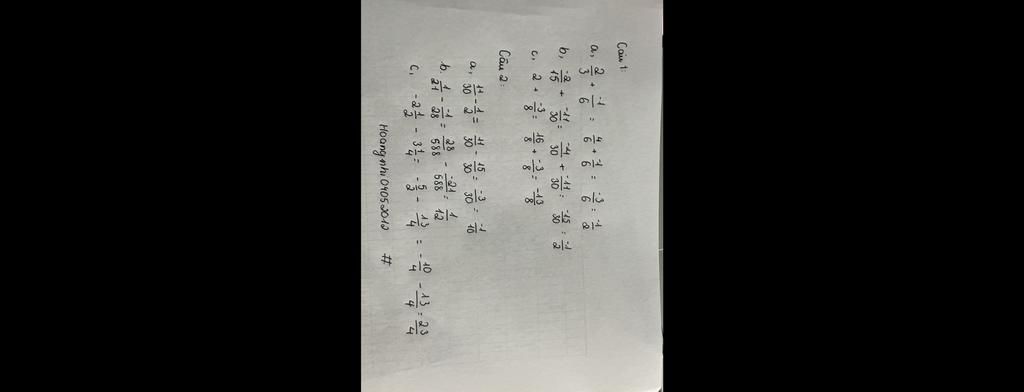 Câu 1:
a, 2/3 + -1/6 = 4/6 + -1/6 = -3/6 = -1/2
b, -2/15 + -11/30 = -4/30 + -11/30 = -15/30 = -1/2
c, 2 + -3/8 = 16/8 + -3/8 = -13/8
Câu 2:
a, 11/30 - 1/2 = 11/30 - 15/30 = -3/30 = -1/10
b. 1/21 - -1/28 = 28/588 - -21/588 = 1/12
c, -2 1/2 - 3 1/4 = -5/2 - 13/4 = -10/4 - 13/4 = 23/4
Hoangnhi04052012 #